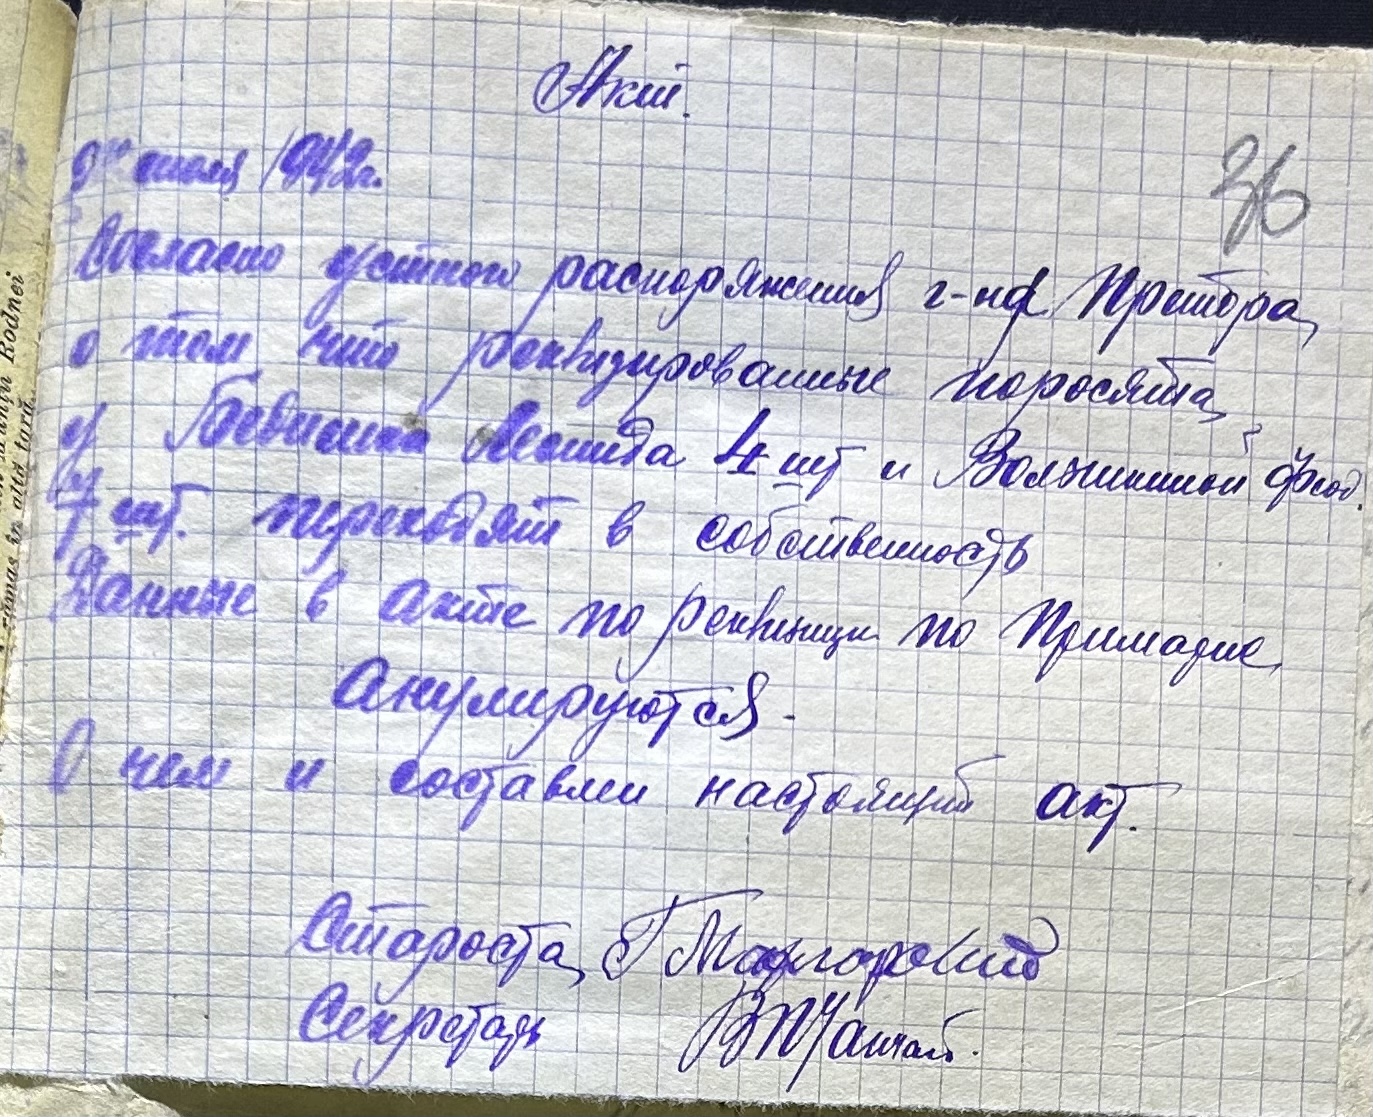 Акт.
36
июля 1942г.
Согласно устного распоряжения г-на Претора,
о том что реквизированные поросята,
у Леонида 4 шт и Волжениной Феод.
7 шт. переходят в собственность
Данные в акте по реквизиции по Примарие,
Анулируются.
О чем и составлен настоящий акт.
Староста,
Секретарь
Rodnei
in alto tarif